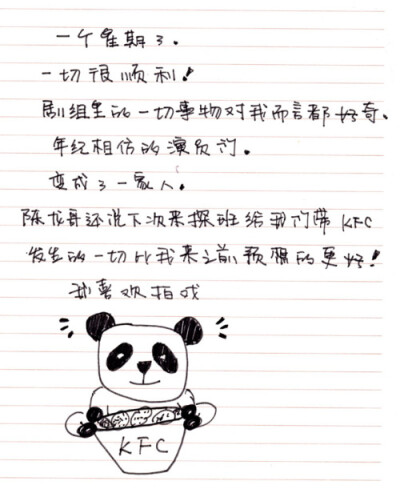 一个星期了.
一切很顺利!
剧组里的一切事物对我而言都好奇.
年纪相仿的演员们.
变成了一家人.
陈龙哥还说下次来探班给我们带 KFC
发生的一切比我来之前预想的更好!
我喜欢拍戏
KFC